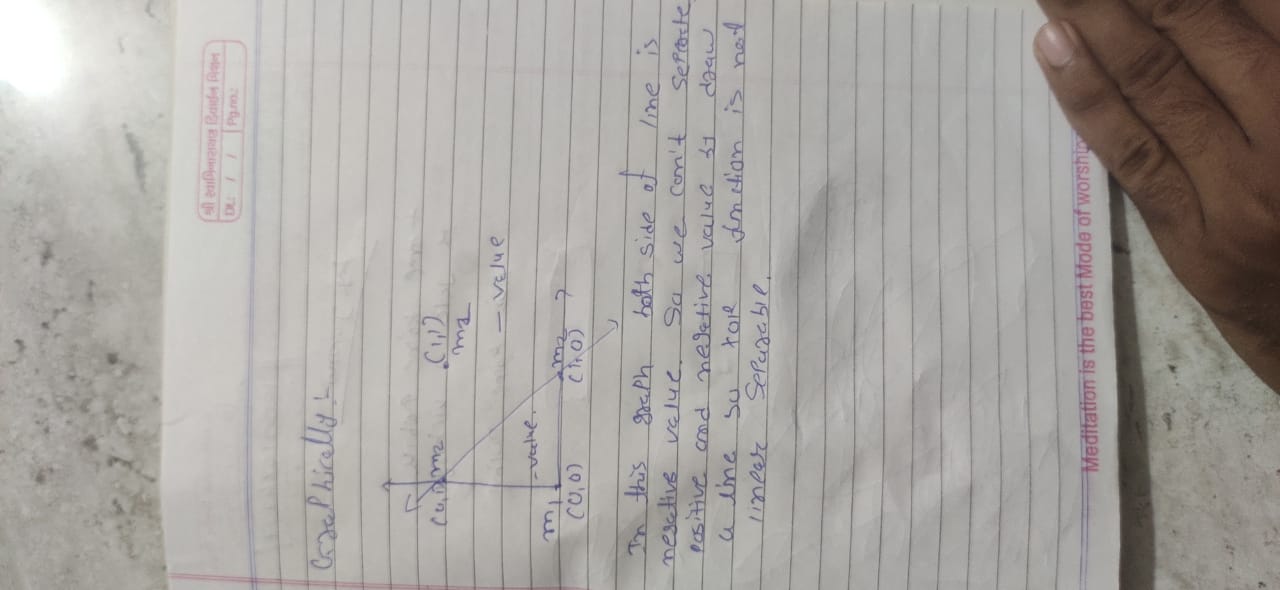 श्री स्वामिनारायण डिवाईन मिशन
Dt.: / / Pg.no.:
Graphically :-
(0,1) m2
(1,1)
m2
- value
- value.
m1
m2
(0,0)
(1,0)
In this graph both side of line is
negative value. So we can't seprate
positive and negative value by draw
a line so XOR function is not
linear separable.
Meditation is the best Mode of worship